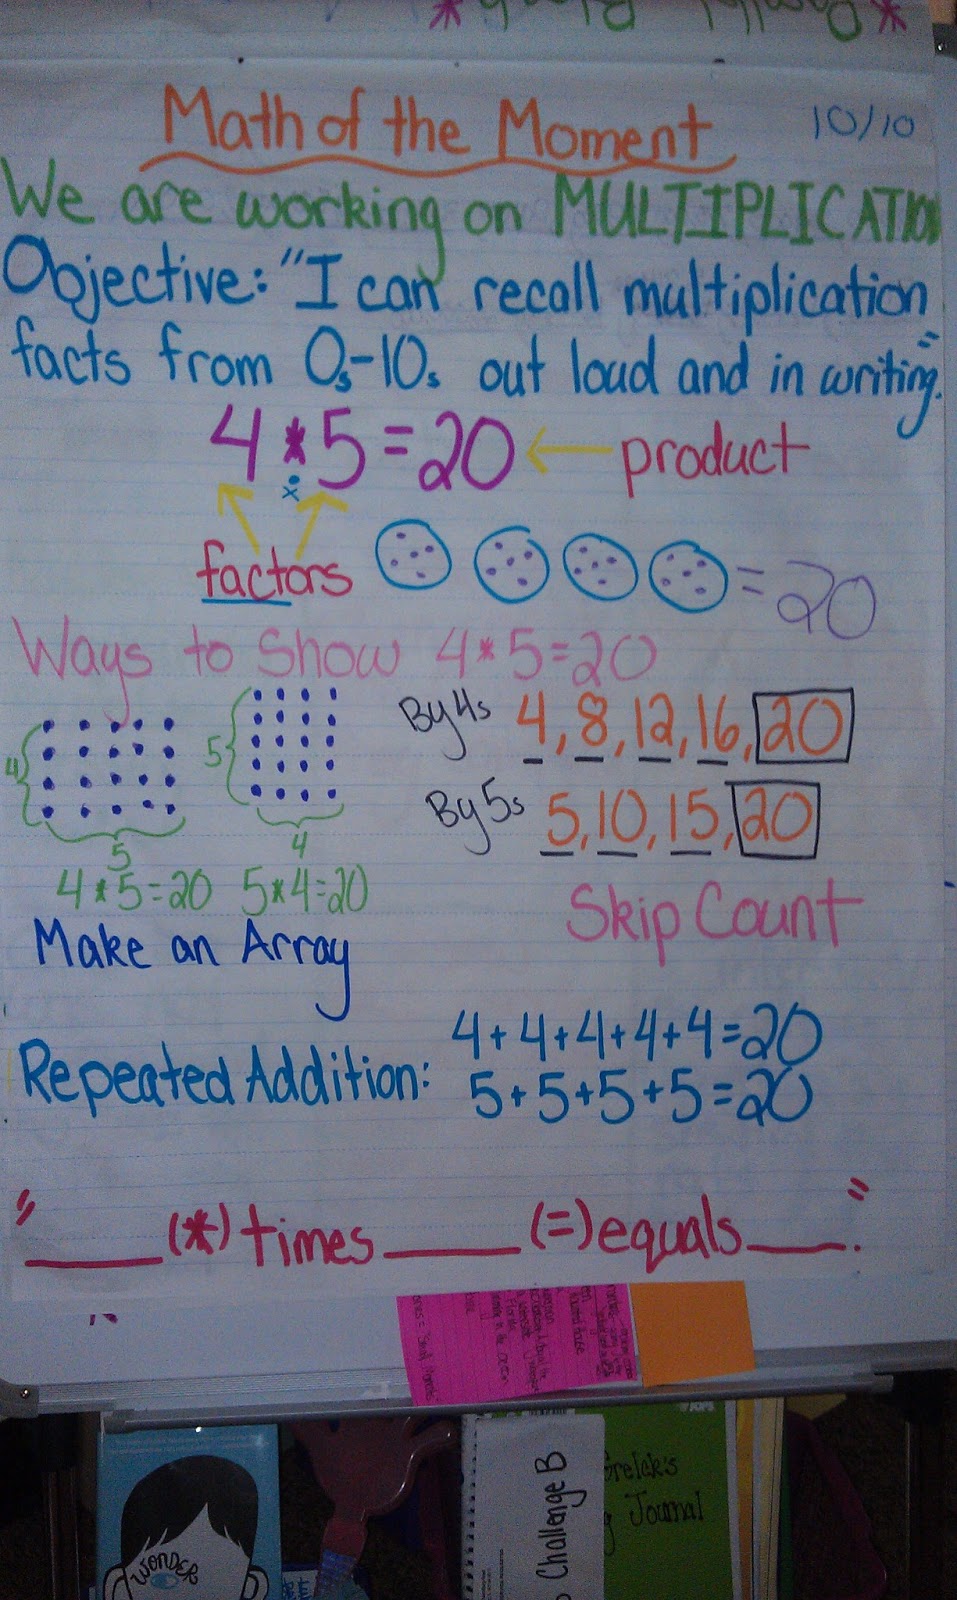 Math of the Moment
10/10
We are working on MULTIPLICATION
Objective: "I can recall multiplication
facts from 0s-10s out loud and in writing."
4 * 5 = 20 ← product
• x
factors
= 20
Ways to Show 4 * 5 = 20
4
5
4 * 5 = 20
5
4
5 * 4 = 20
Make an Array
By 4s 4, 8, 12, 16, 20
By 5s 5, 10, 15, 20
Skip Count
Repeated Addition:
4+4+4+4+4=20
5+5+5+5=20
"____ (*) times ____ (=) equals ____."
WONDER
Challenge B
Journal